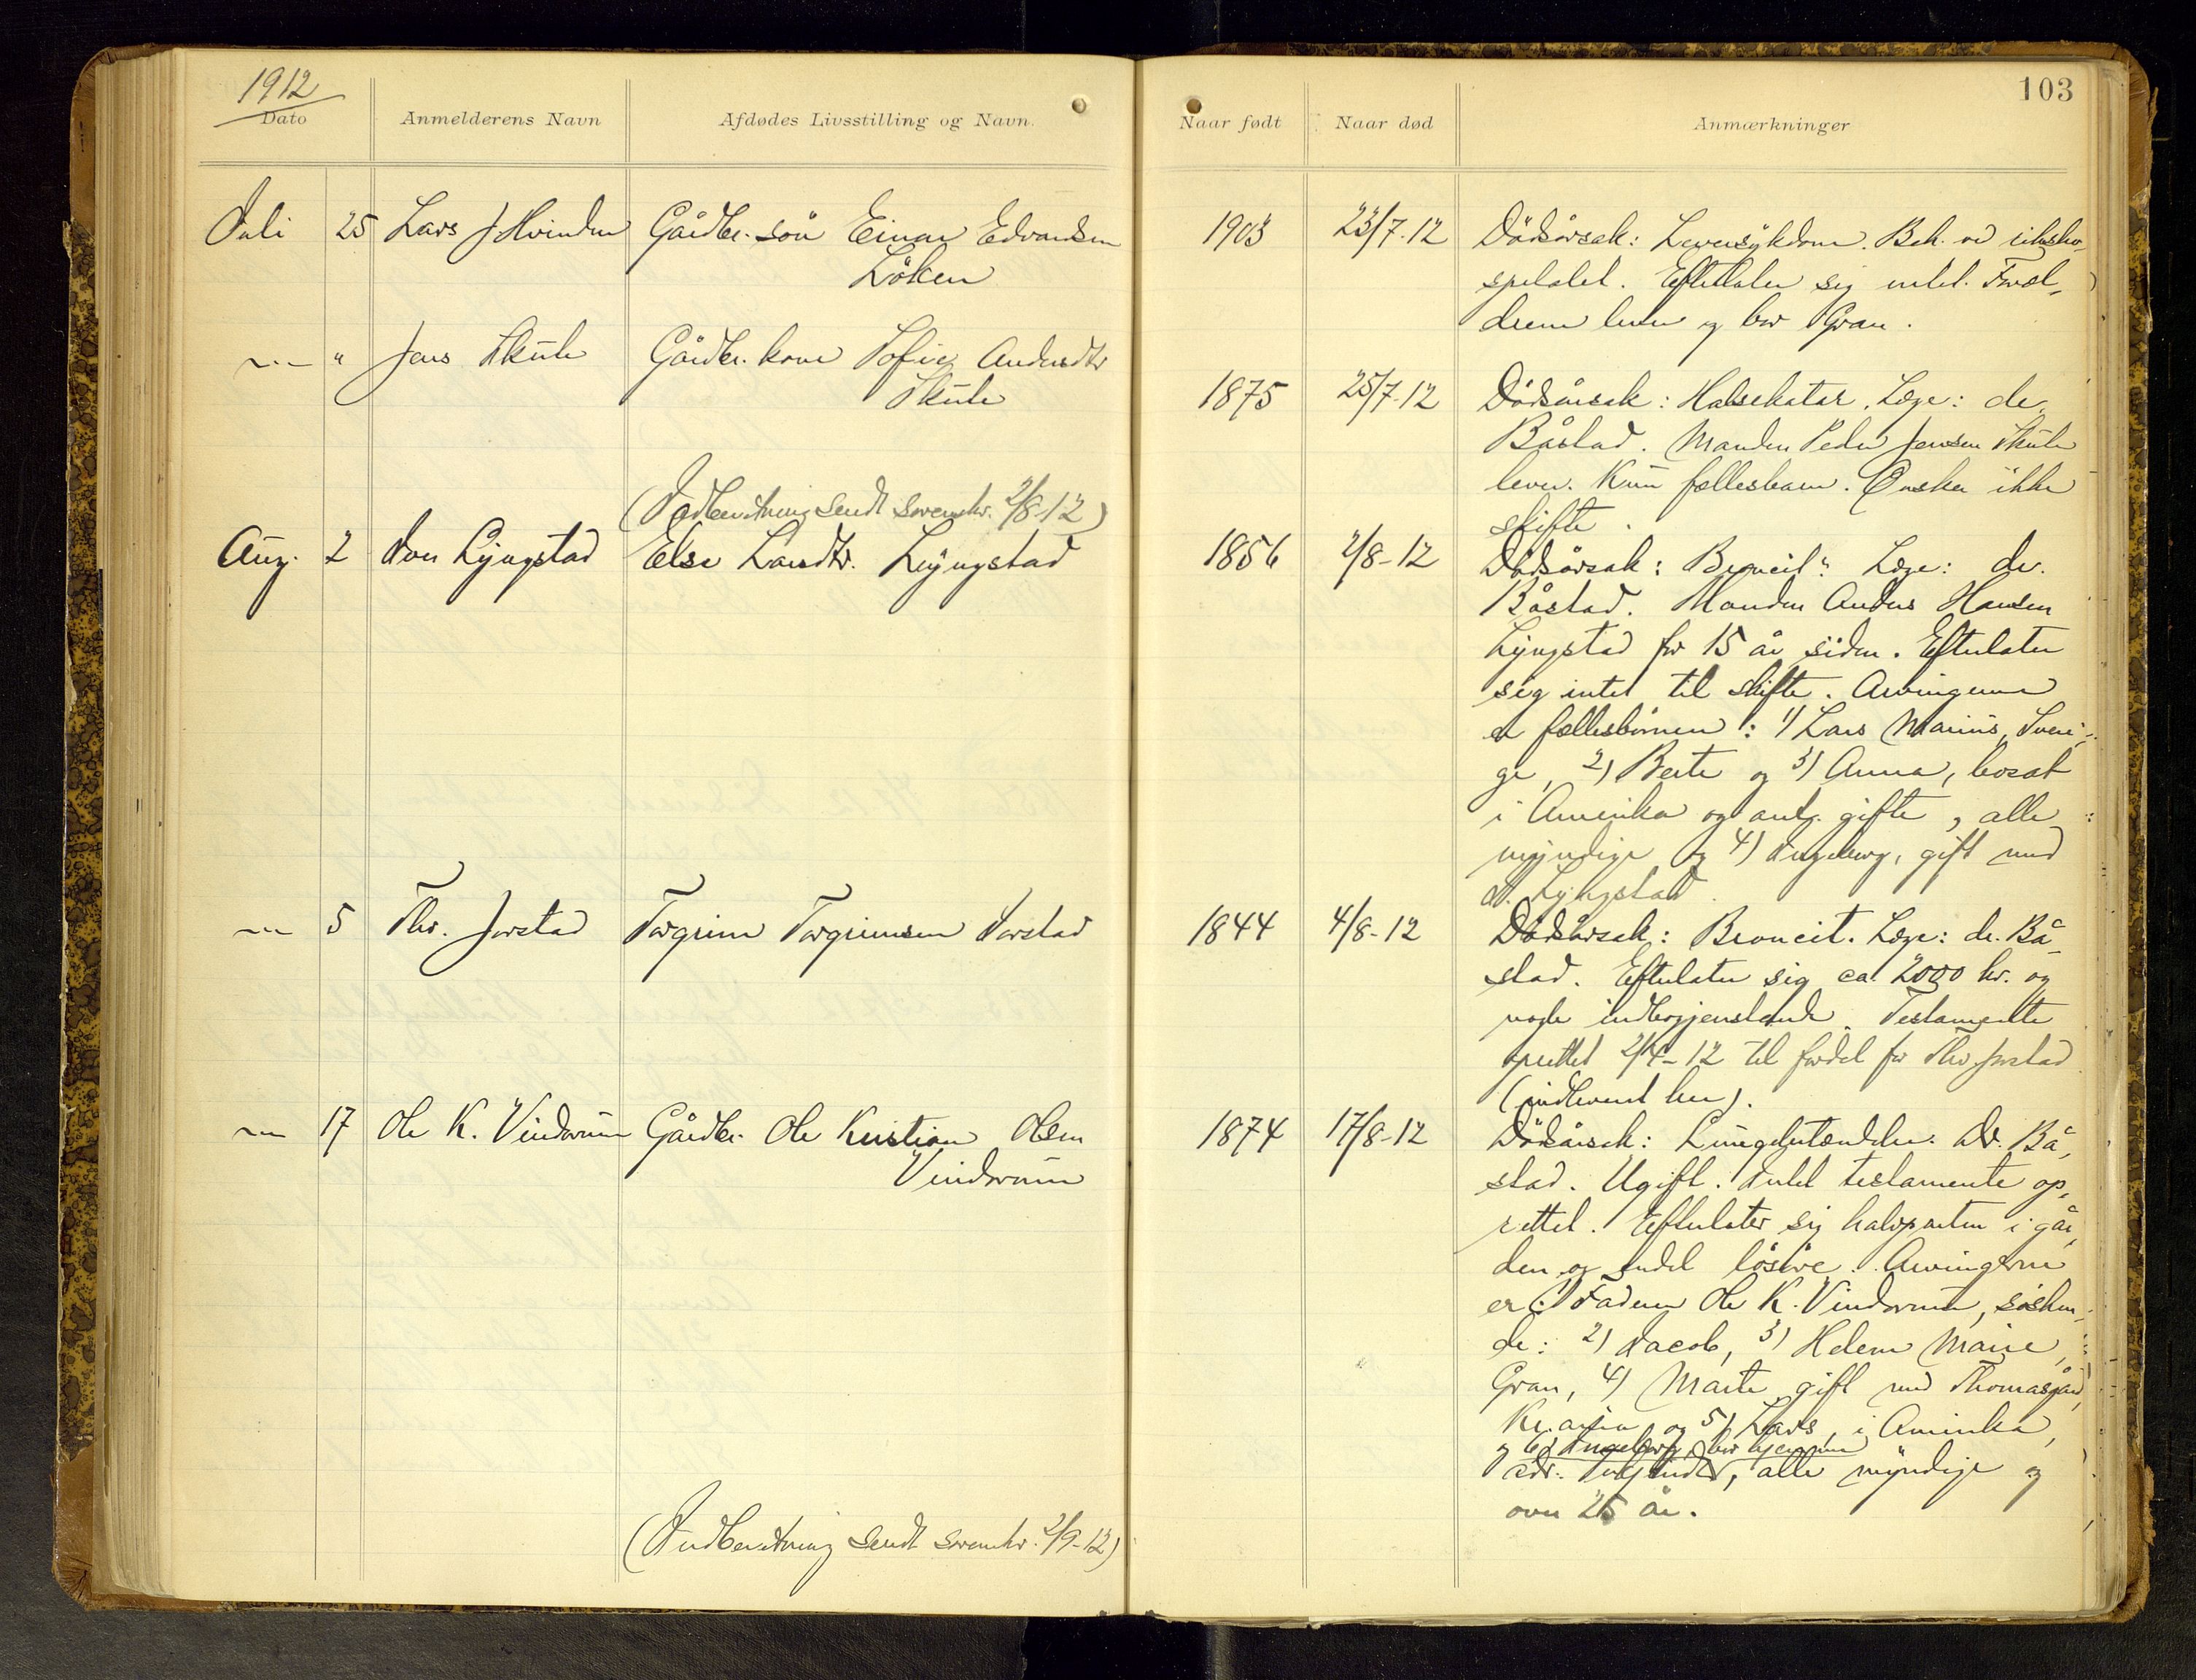 1912
Dato
Anmelderens Navn
Afdødes Livsstilling og Navn.
Juli 25 Lars J. Hvinden Gårdbr. sön Einar Edvardsen
Löken
" Jens Skute Gårdbr. kone Sofie Andersdtr
Skute
(Indberetning sendt sorenskr. 2/8-12)
Aug. 2 Iver Lyngstad Else Larsdtr. Lyngstad
5 Thv. Jorstad Torgrim Torgrimsen Jorstad
17 Ole K. Vindorum Gårdbr. Ole Kristian Olsen
Vindorum
(Indberetning sendt sorenskr. 2/9-12)
103
Naar født
Naar død
Anmærkninger
1903 23/7-12 Dödsårsak: Leversykdom. Beh. ved riksho-
spitalet. Efterlater sig intet. Foræl-
drene lever og bor Gran.
1875 25/7-12 Dödsårsak: Halsekatar. Læge: dr.
Båstad. Manden Peder Jensen Skute
lever. Kun fællesbarn. Önsker ikke
skifte.
1856 2/8-12 Dödsårsak: Broncit. Læge: dr.
Båstad. Manden Anders Hansen
Lyngstad for 15 år siden. Efterlater
sig intet til skifte. Arvingerne
er fællesbörnen: 1) Lars Marius, Sveri-
ge, 2) Berte og 3) Anna, bosat
i Amerika og antg. gifte, alle
myndige og 4) Ingeborg, gift med
I. Lyngstad.
1844 4/8-12 Dödsårsak: Broncit. Læge: dr. Bå-
stad. Efterlater sig ca. 2000 kr. og
nogle indbogjenstande. Testamente
oprettet 2/4-12 til fordel for Thv. Jorstad
(indleveret her).
1874 17/8-12 Dödsårsak: Lungebetændelse. Dr. Bå-
stad. Ugift. Intet testamente op-
rettet. Efterlater sig halvparten i går-
den og endel lösöre. Arvingerne
er: 1) Faderen Ole K. Vindorum, sösken-
de: 2) Jacob, 3) Helene Marie,
Gran, 4) Marte gift med Thomasgård,
Kr.ania og 5) Lars, i Amerika,
og 6) Ingeborg, bor hjemme
adr. , alle myndige og
over 25 år.